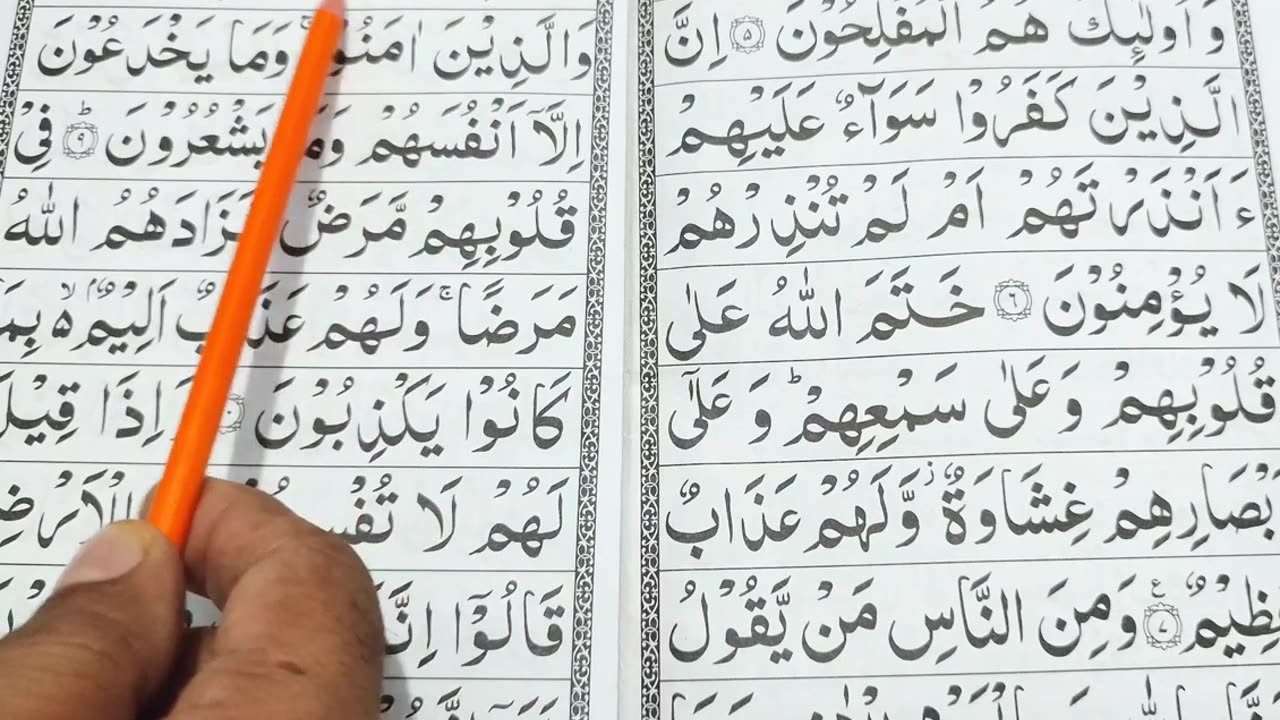 وَ اُولٰٓئِكَ هُمُ الْمُفْلِحُوْنَ ۝۵ اِنَّ
الَّذِيْنَ كَفَرُوْا سَوَآءٌ عَلَيْهِمْ
ءَاَنْذَرْتَهُمْ اَمْ لَمْ تُنْذِرْهُمْ
لَا يُؤْمِنُوْنَ ۝۶ خَتَمَ اللّٰهُ عَلٰى
قُلُوْبِهِمْ وَعَلٰى سَمْعِهِمْ ؕ وَ عَلٰٓى
بْصَارِهِمْ غِشَاوَةٌ ز وَّلَهُمْ عَذَابٌ
ظِيْمٌ ۝۷ ع وَمِنَ النَّاسِ مَنْ يَّقُوْلُ
وَالَّذِيْنَ اٰمَنُوْا ۚ وَمَا يَخْدَعُوْنَ
اِلَّاۤ اَنْفُسَهُمْ وَمَا يَشْعُرُوْنَ ؕ ۝۹ فِيْ
قُلُوْبِهِمْ مَّرَضٌ فَزَادَهُمُ اللّٰهُ
مَرَضًا ۚ وَلَهُمْ عَذَابٌ اَلِيْمٌۢ ۵ۙ بِمَا
كَانُوْا يَكْذِبُوْنَ وَاِذَا قِيْلَ
لَهُمْ لَا الْاَرْضِ
قَالُوْۤا اِنَّ